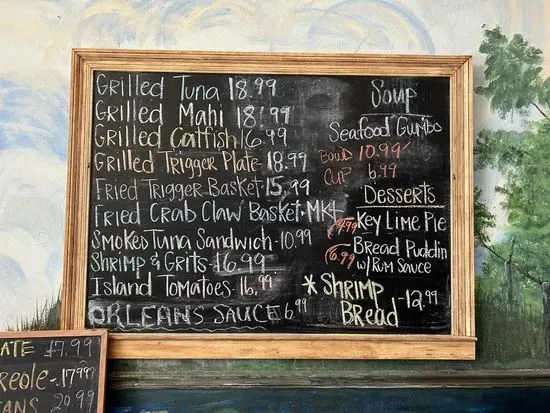 Grilled Tuna 18.99
Grilled Mahi 18.99
Grilled Catfish 16.99
Grilled Trigger Plate - 18.99
Fried Trigger Basket - 15.99
Fried Crab Claw Basket - MKt
Smoked Tuna Sandwich - 10.99
Shrimp & Grits - 16.99
Island Tomatoes - 16.99
ORLEANS SAUCE 6.99
Soup
Seafood Gumbo
BOWL 10.99
CUP 6.99
Desserts
Key Lime Pie
6.99 Bread Puddin
w/ Rum Sauce
* SHRIMP
BREAD - 12.99
ATE 17.99
reole - 17.99
ANS 20.99